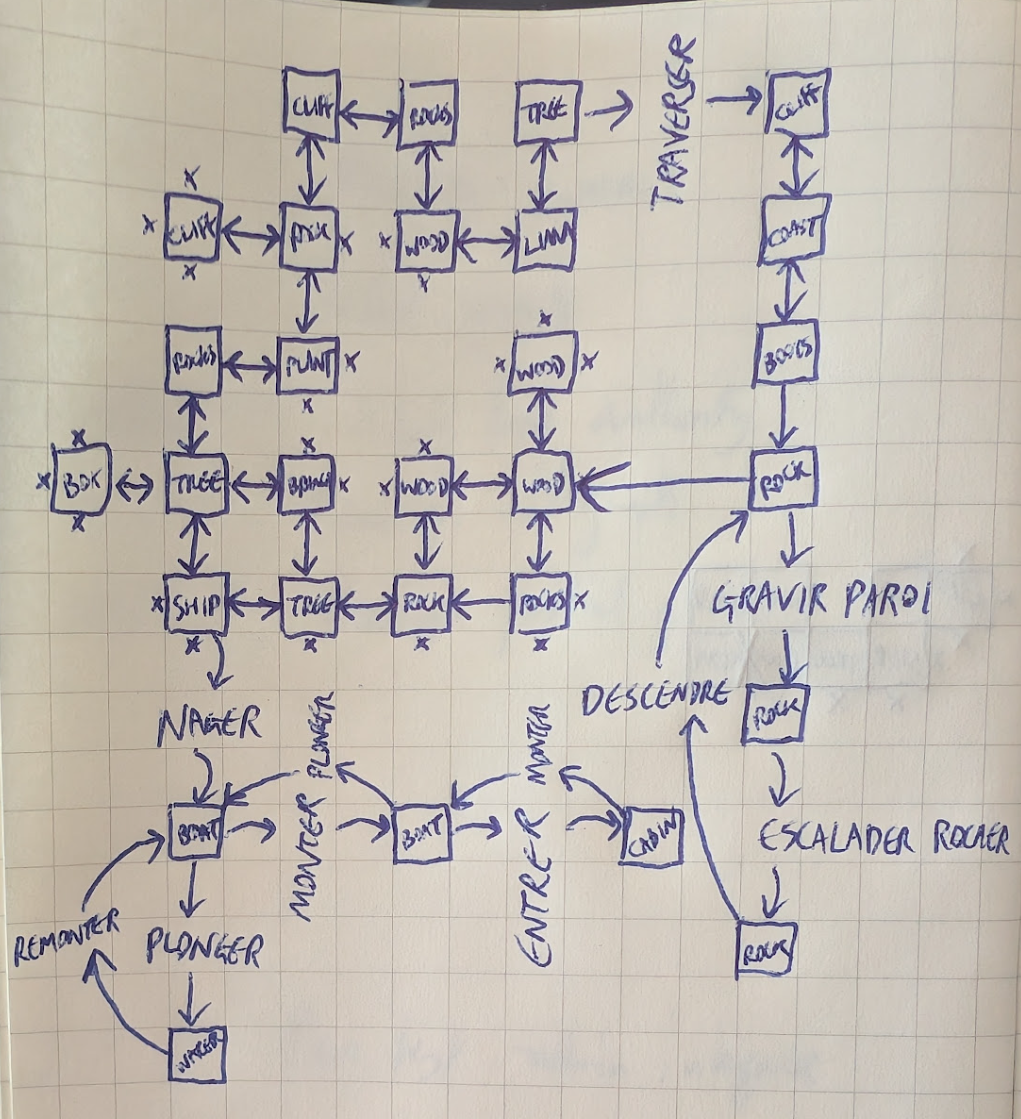 CLIFF ROCKS TREE TRAVERSER CLIFF
x
x CLIFF x x WOOD COAST
x x
x
ROCKS PLANT x x WOOD x BOOTS
x
x x x
x BOX TREE x x WOOD WOOD ROCK
x
x SHIP TREE ROCK ROCKS x GRAVIR PAROI
x x x x
DESCENDRE ROCK
NAGER PLONGER MONTER
BOAT MONTER BOAT ENTRER CABIN ESCALADER ROCHER
REMONTER PLONGER ROCKS